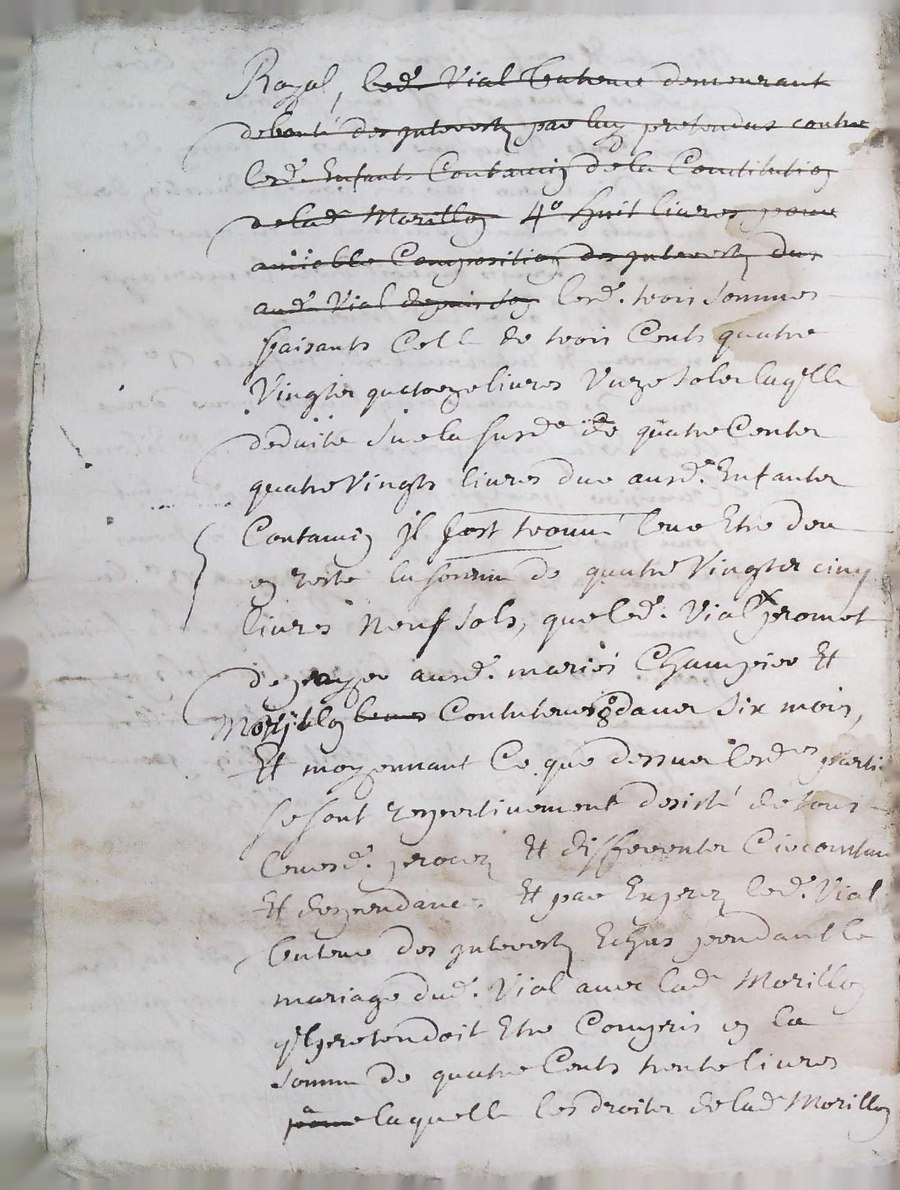 Royal, led. Vial Contenu demeurant
debouté des interests par luy pretendus contre
lesd. Enfants Contamin de la Constitution
de lad. Morillon 4° huit livres pour
amiable Composition des interests dus
aud. Vial depuis lesd. trois sommes
faisants Celle de trois Cents quatre
Vingts quatorze livres Unze sols laqlle
deduite sur la susd. de quatre Cents
quatre Vingts livres due ausd. Enfants
Contamin Il s'est trouvé leur Etre deu
en reste la somme de quatre Vingts cinq
livres Neuf sols, que led. Vial promet
de payer ausd. mariés Champier Et
Morillon Contuteurs dans six mois,
Et moyennant Ce que dessus lesd. parti
se sont respectivement desisté de tous
leursd. proces Et differents Circonstan
Et dependances. Et par Exprez led. Vial
des interests Echus pendant le
mariage dud. Vial avec lad. Morillon
ql pretendoit Etre Compris en la
somme de quatre Cents trente livres
a laquelle les droits de lad. Morillon